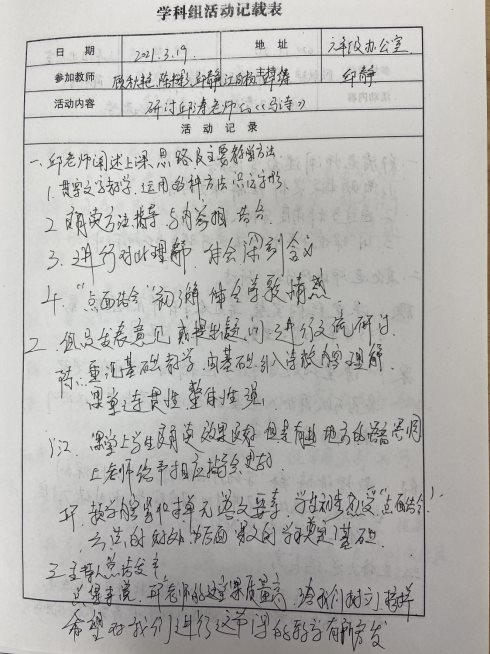 学科组活动记载表
日 期 2021.3.19. 地 址 六年级办公室
参加教师 顾秋艳 陈 邱静 江 主持人 邱静
活动内容 研讨邱涛老师的《马诗》
活 动 记 录
一、邱老师阐述上课思路及主要教学方法
1. 贯穿文字教学，运用多种方法识记字形
2. 朗读方法指导，与内容相结合
3. 进行对比理解，体会深刻含义
4. “点面结合”初步 体会 情感
二、组员发表意见 或提出疑问，进行交流研讨
陈：重视基础教学，由基础引入诗歌内容理解
课堂连贯性整体性强
江：课堂上学生朗读效果良好，但是有些地方的语音语调
上老师给予相应指导会更好
环：教学内容紧扣单元语文要素，学生初步感受“点面结合”
方法的好处，为后面课文的学习奠定了基础。
三、主持人总结发言
总体来说，邱老师的这堂课质量高，给我们树立了榜样
希望对我们进行这节课的教学有所启发